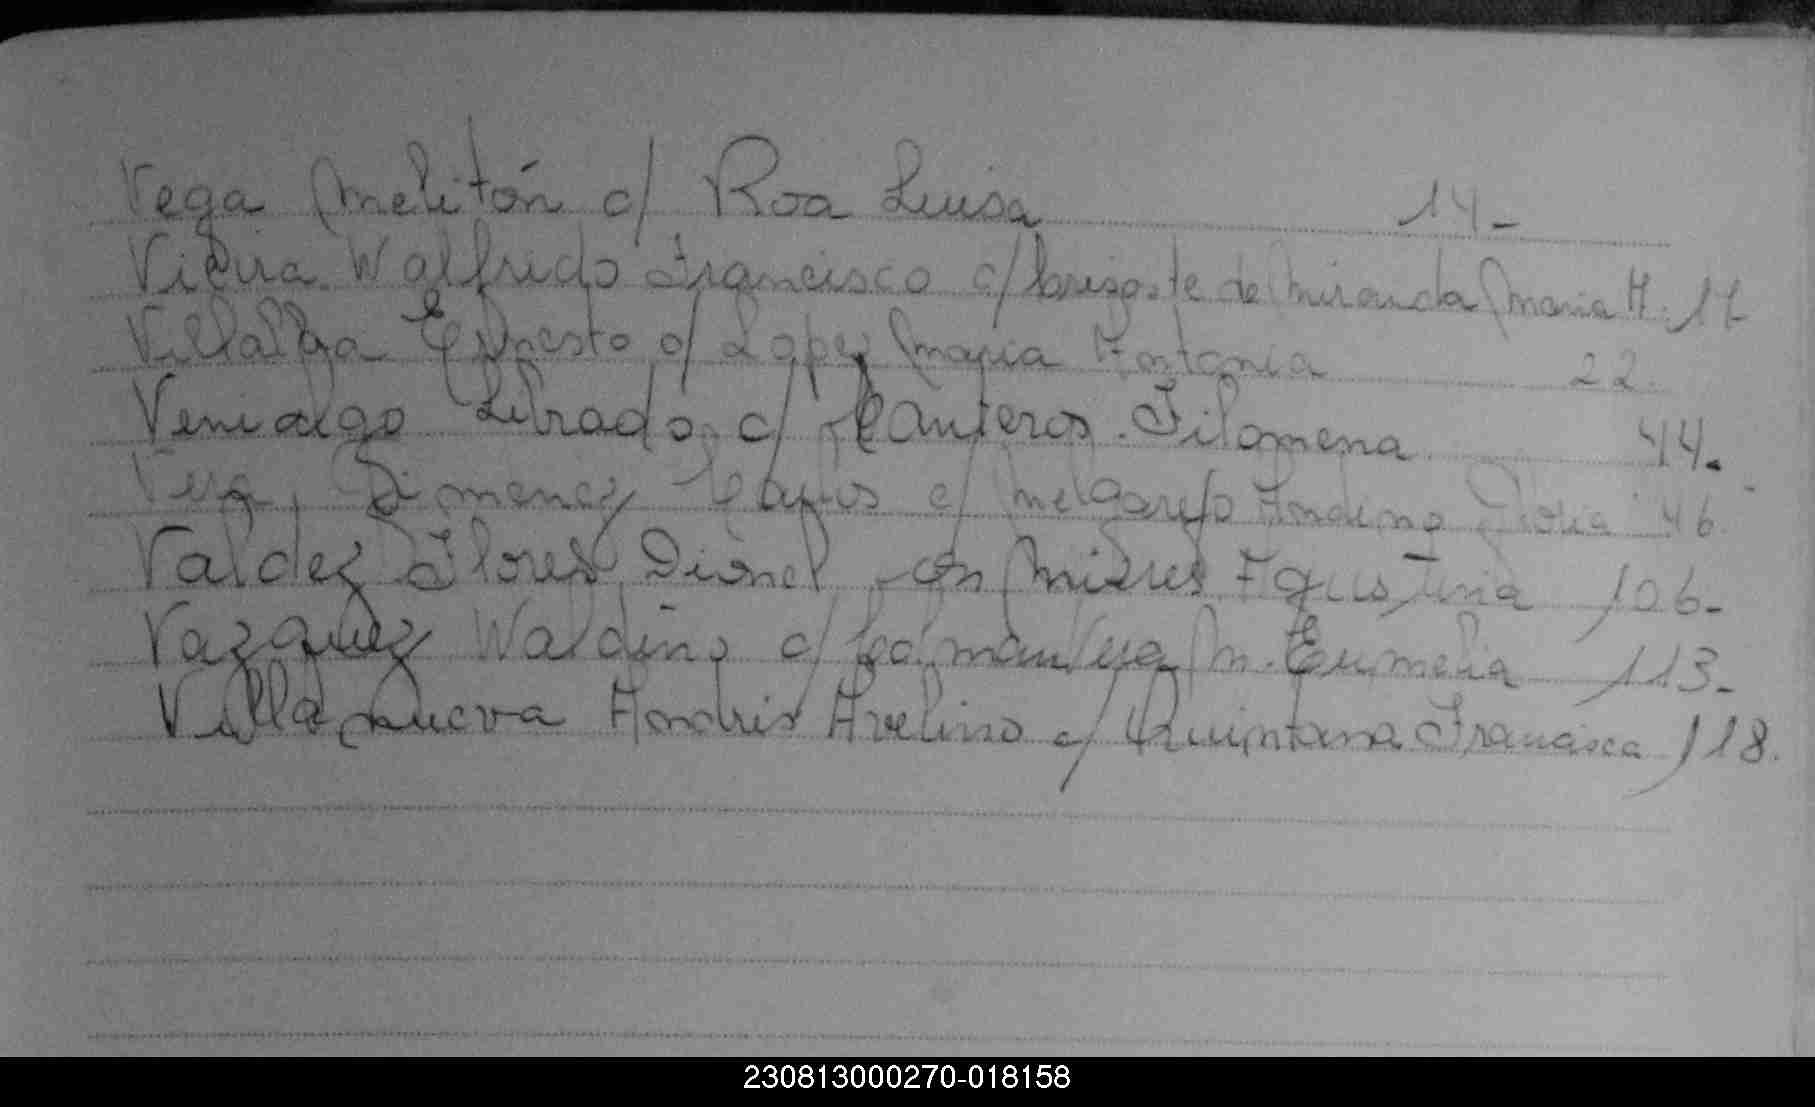 Vega Melitón c/ Roa Luisa 14-
Vieira Walfrido Francisco c/ de Miranda Maria A. 17
Villalba Ernesto c/ Lopez Maria Antonia 22.
Venialgo Librado c/ Canteros Filomena 44.
Vera Gimenez Carlos c/ Melgarejo Andino Gloria 46
Valdez Flores Dionel con Mieres Agustina 106-
Vazquez Waldino c/ M. Eumelia 113-
Villanueva Andres Avelino c/ Quintana Francisca 118.
230813000270-018158